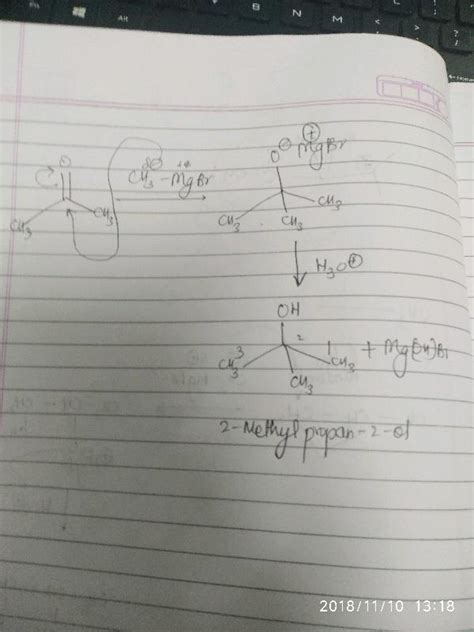 Alt
B
N
M
O
CH3
CH3
CH3 δ⊖ - MgBr δ+
O⊖ ⊕MgBr
CH3
CH3
CH3
H3O⊕
OH
2
3
CH3
1
CH3
CH3
+ Mg(OH)Br
2-Methyl propan-2-ol
2018/11/10 13:18